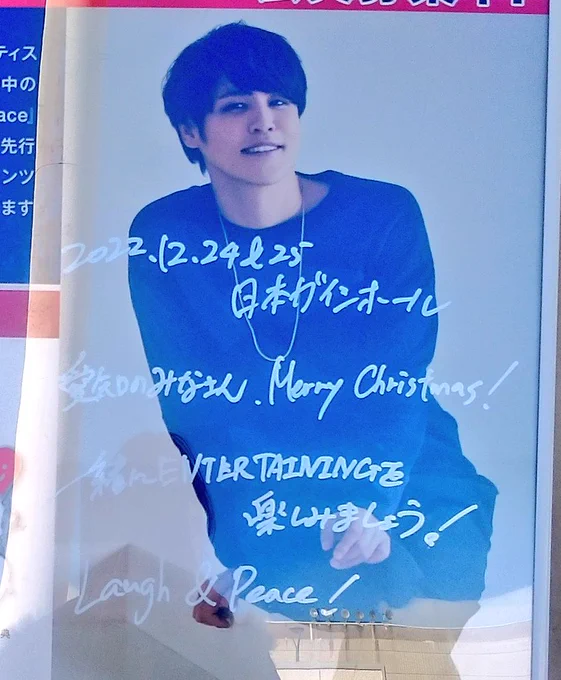 ティス
中の
ace』
先行
ンツ
ます
2022.12.24&25
日本ガイシホール
愛知のみなさん、Merry Christmas!
一緒にENTERTAININGを
楽しみましょう!
Laugh & Peace!
典